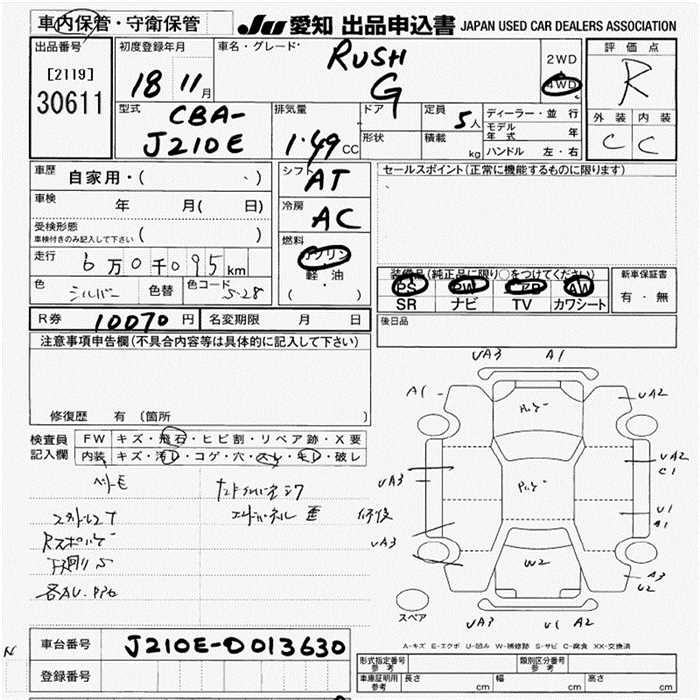 車内保管・守衛保管
JU 愛知 出品申込書 JAPAN USED CAR DEALERS ASSOCIATION
出品番号
[2119]
30611
初度登録年月
18 11月
車名・グレード
RUSH
G
2WD
4WD
評価点
R
外装 内装
C C
型式
CBA-
J210E
排気量
1.49CC
ドア
形状
定員
5人
積載
kg
ディーラー・並行
モデル年式 年
ハンドル 左・右
車歴
自家用・( 、)
車検
年 月( 日)
受検形態
車検付きのみ記入して下さい ( )
走行
6万0千095km
色
シルバー
色替
色コード
S-28
シフト
AT
冷房
AC
燃料
ガソリン
軽・油
( ・ )
セールスポイント(正常に機能するものに限ります)
装備品(純正品に限り○をつけてください)
PS PW エアB AW
SR ナビ TV カワシート
新車保証書
有・無
後日品
R券 10070円 名変期限 月 日
注意事項申告欄(不具合内容等は具体的に記入して下さい)
修復歴 有(箇所 )
検査員
記入欄
FW キズ・飛石・ヒビ割・リペア跡・X要
内装 キズ・汚レ・コゲ・穴・スレ・キレ・破レ
UA3 A1
A1 UA2
UA3 UA2
C1
U1
A1
UA3
W2
A3
U2
UA3 U1 A2
スペア
A-キズ E-エクボ U-凹み W-補修跡 S-サビ C-腐食 XX-交換済
車台番号 J210E-0013630
登録番号
型式指定番号
参考
類別区分番号
参考
車庫証明用
参考
長さ cm 幅 cm 高さ cm